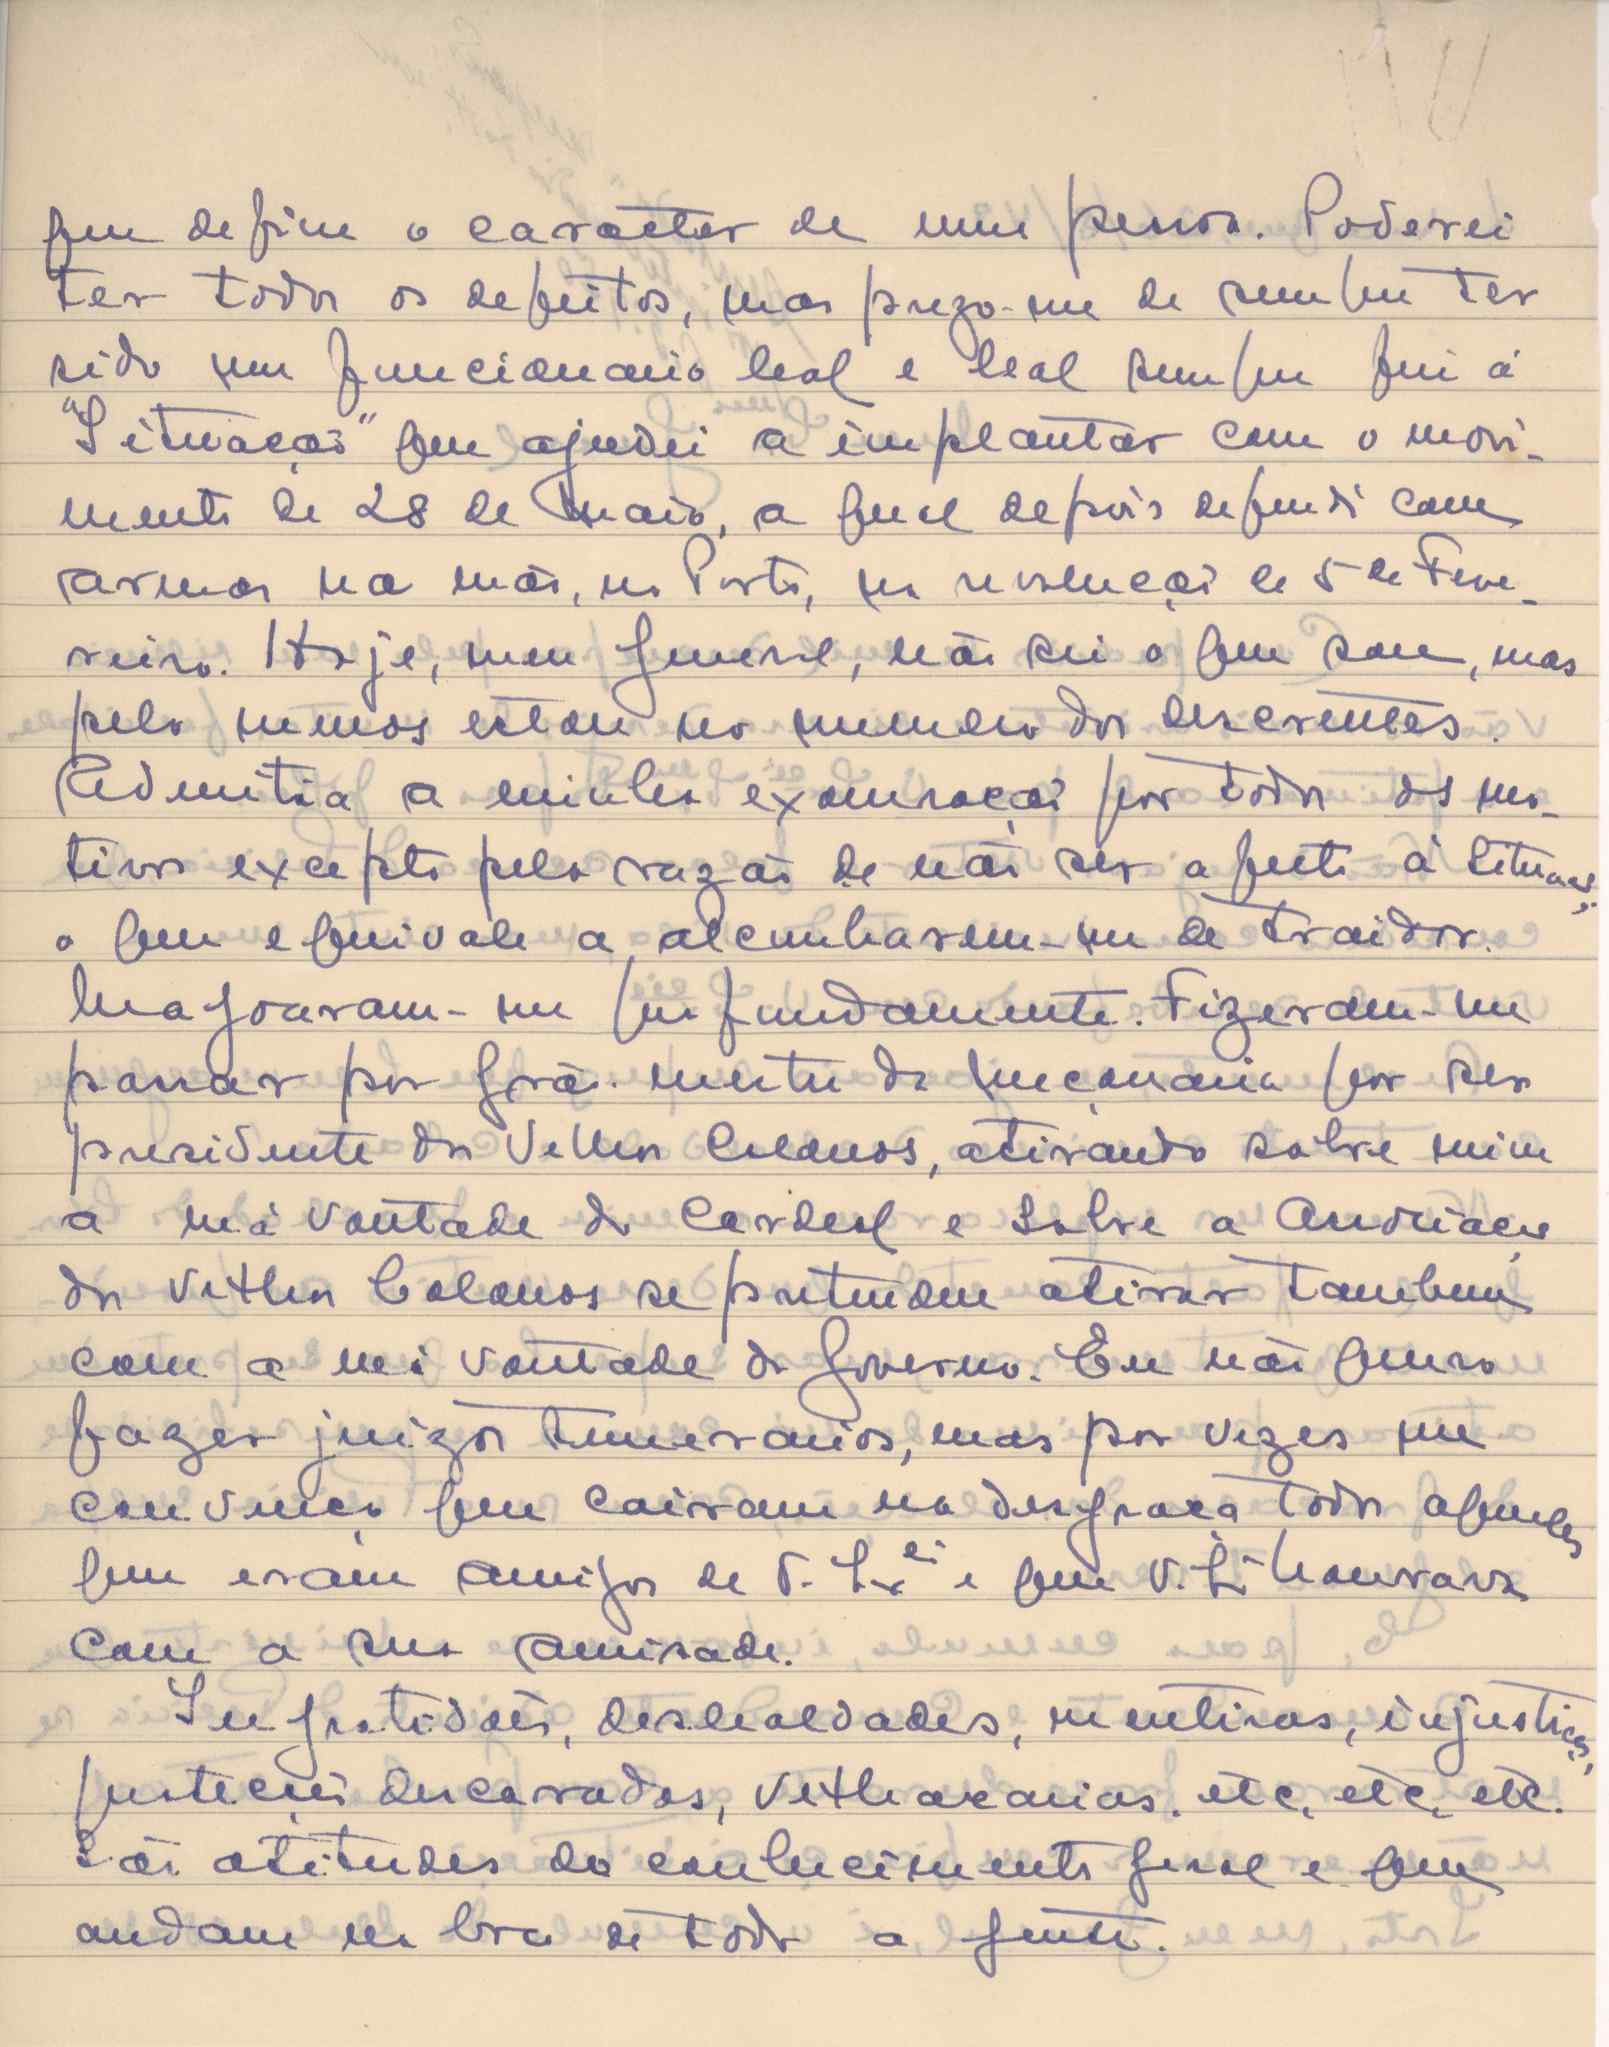 que define o caracter de uma pessoa. Poderei
ter todos os defeitos, mas prezo-me de sempre ter
sido um funcionario leal e leal sempre fui á
"Situação" que ajudei a implantar com o movi-
mento de 28 de Maio, a qual depois defendi com
armas na mão, no Porto, na revolução de 5 de Feve-
reiro. Hoje, meu General, não sei o que sou, mas
pelo menos estou no numero dos descrentes.
Admitia a minha exoneração por todos os mo-
tivos excepto pela razão de não ser afecto á Situação,
o que equivale a alcunharem-me de traidor.
Magoaram-me profundamente. Fizeram-me
passar por Grão-mestre da maçonaria por ser
presidente dos Velhos Colonos, atirando sobre mim
a má vontade do Cardeal e sobre a Associação
dos Velhos Colonos se pretendem atirar tambem
com a má vontade do Governo. Eu não quero
fazer juizos temerarios, mas por vezes me
convenço que cairam na desgraça todos aqueles
que eram amigos de V. Exª e que V. Exª honrava
com a sua amisade.
Ingratidões, deslealdades, mentiras, injustiças,
protecções descaradas, velhacarias. etc, etc, etc.
São atitudes do conhecimento geral e que
andam na boca de toda a gente.